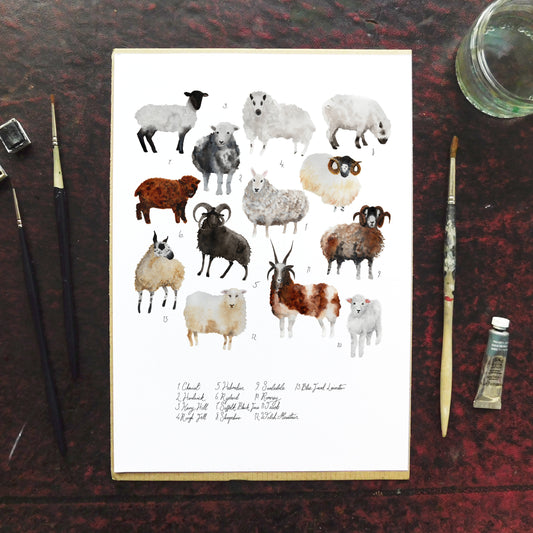 1. Cheviot 5. Hebridean 9. Swaledale 13. Blue Faced Leicester
2. Herdwick 6. Ryeland 10. Romney
3. Kerry Hill 7. Suffolk Black Face 11. Jacob
4. Rough Fell 8. Shropshire 12. Welsh Mountain